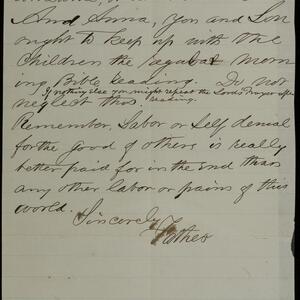 And Anna, you and Lon
ought to keep up with the
children the regular morn
ing Bible reading. Do not
If nothing else you might repeat the Lords Prayer after
neglect this reading.
Remember, Labor or Self denial
for the good of others is really
better paid for in the end than
any other labor or pains of this
world. Sincerely
Father